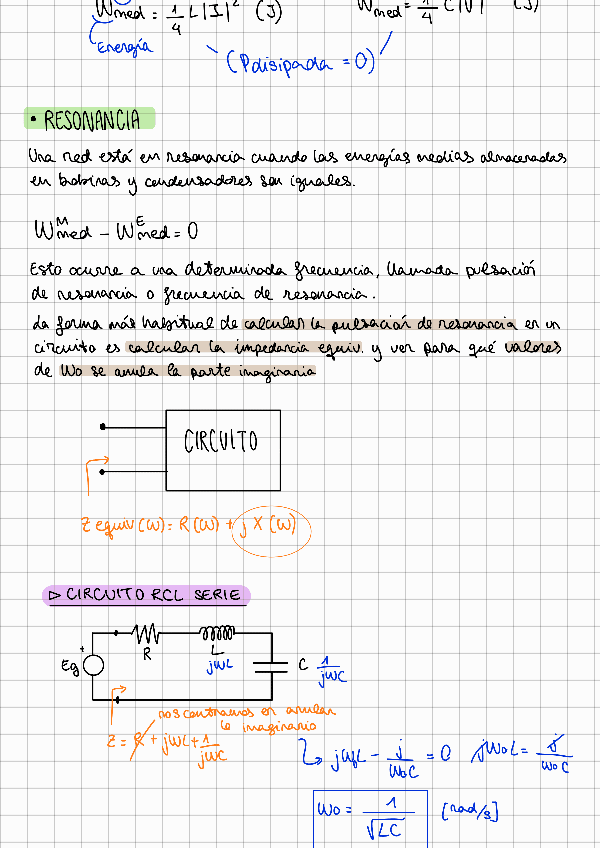 Wmed = 1/4 L |I|² (J)
Wmed = 1/4 C |V|² (J)
Energía
(Pdisipada = 0)
• RESONANCIA
Una red está en resonancia cuando las energías medias almacenadas
en bobinas y condensadores son iguales.
W^M med - W^E med = 0
Esto ocurre a una determinada frecuencia, llamada pulsación
de resonancia o frecuencia de resonancia.
La forma más habitual de calcular la pulsación de resonancia en un
circuito es calcular la impedancia equiv. y ver para qué valores
de Wo se anula la parte imaginaria
CIRCUITO
Z equiv (W) = R (W) + j X (W)
▷ CIRCUITO RCL SERIE
Eg
+
R
L
jWL
C 1/jWC
nos centramos en anular
lo imaginario
Z = R + jWL + 1/jWC
jWoL - j/WoC = 0 jWoL = j/WoC
Wo = 1/√LC [rad/s]